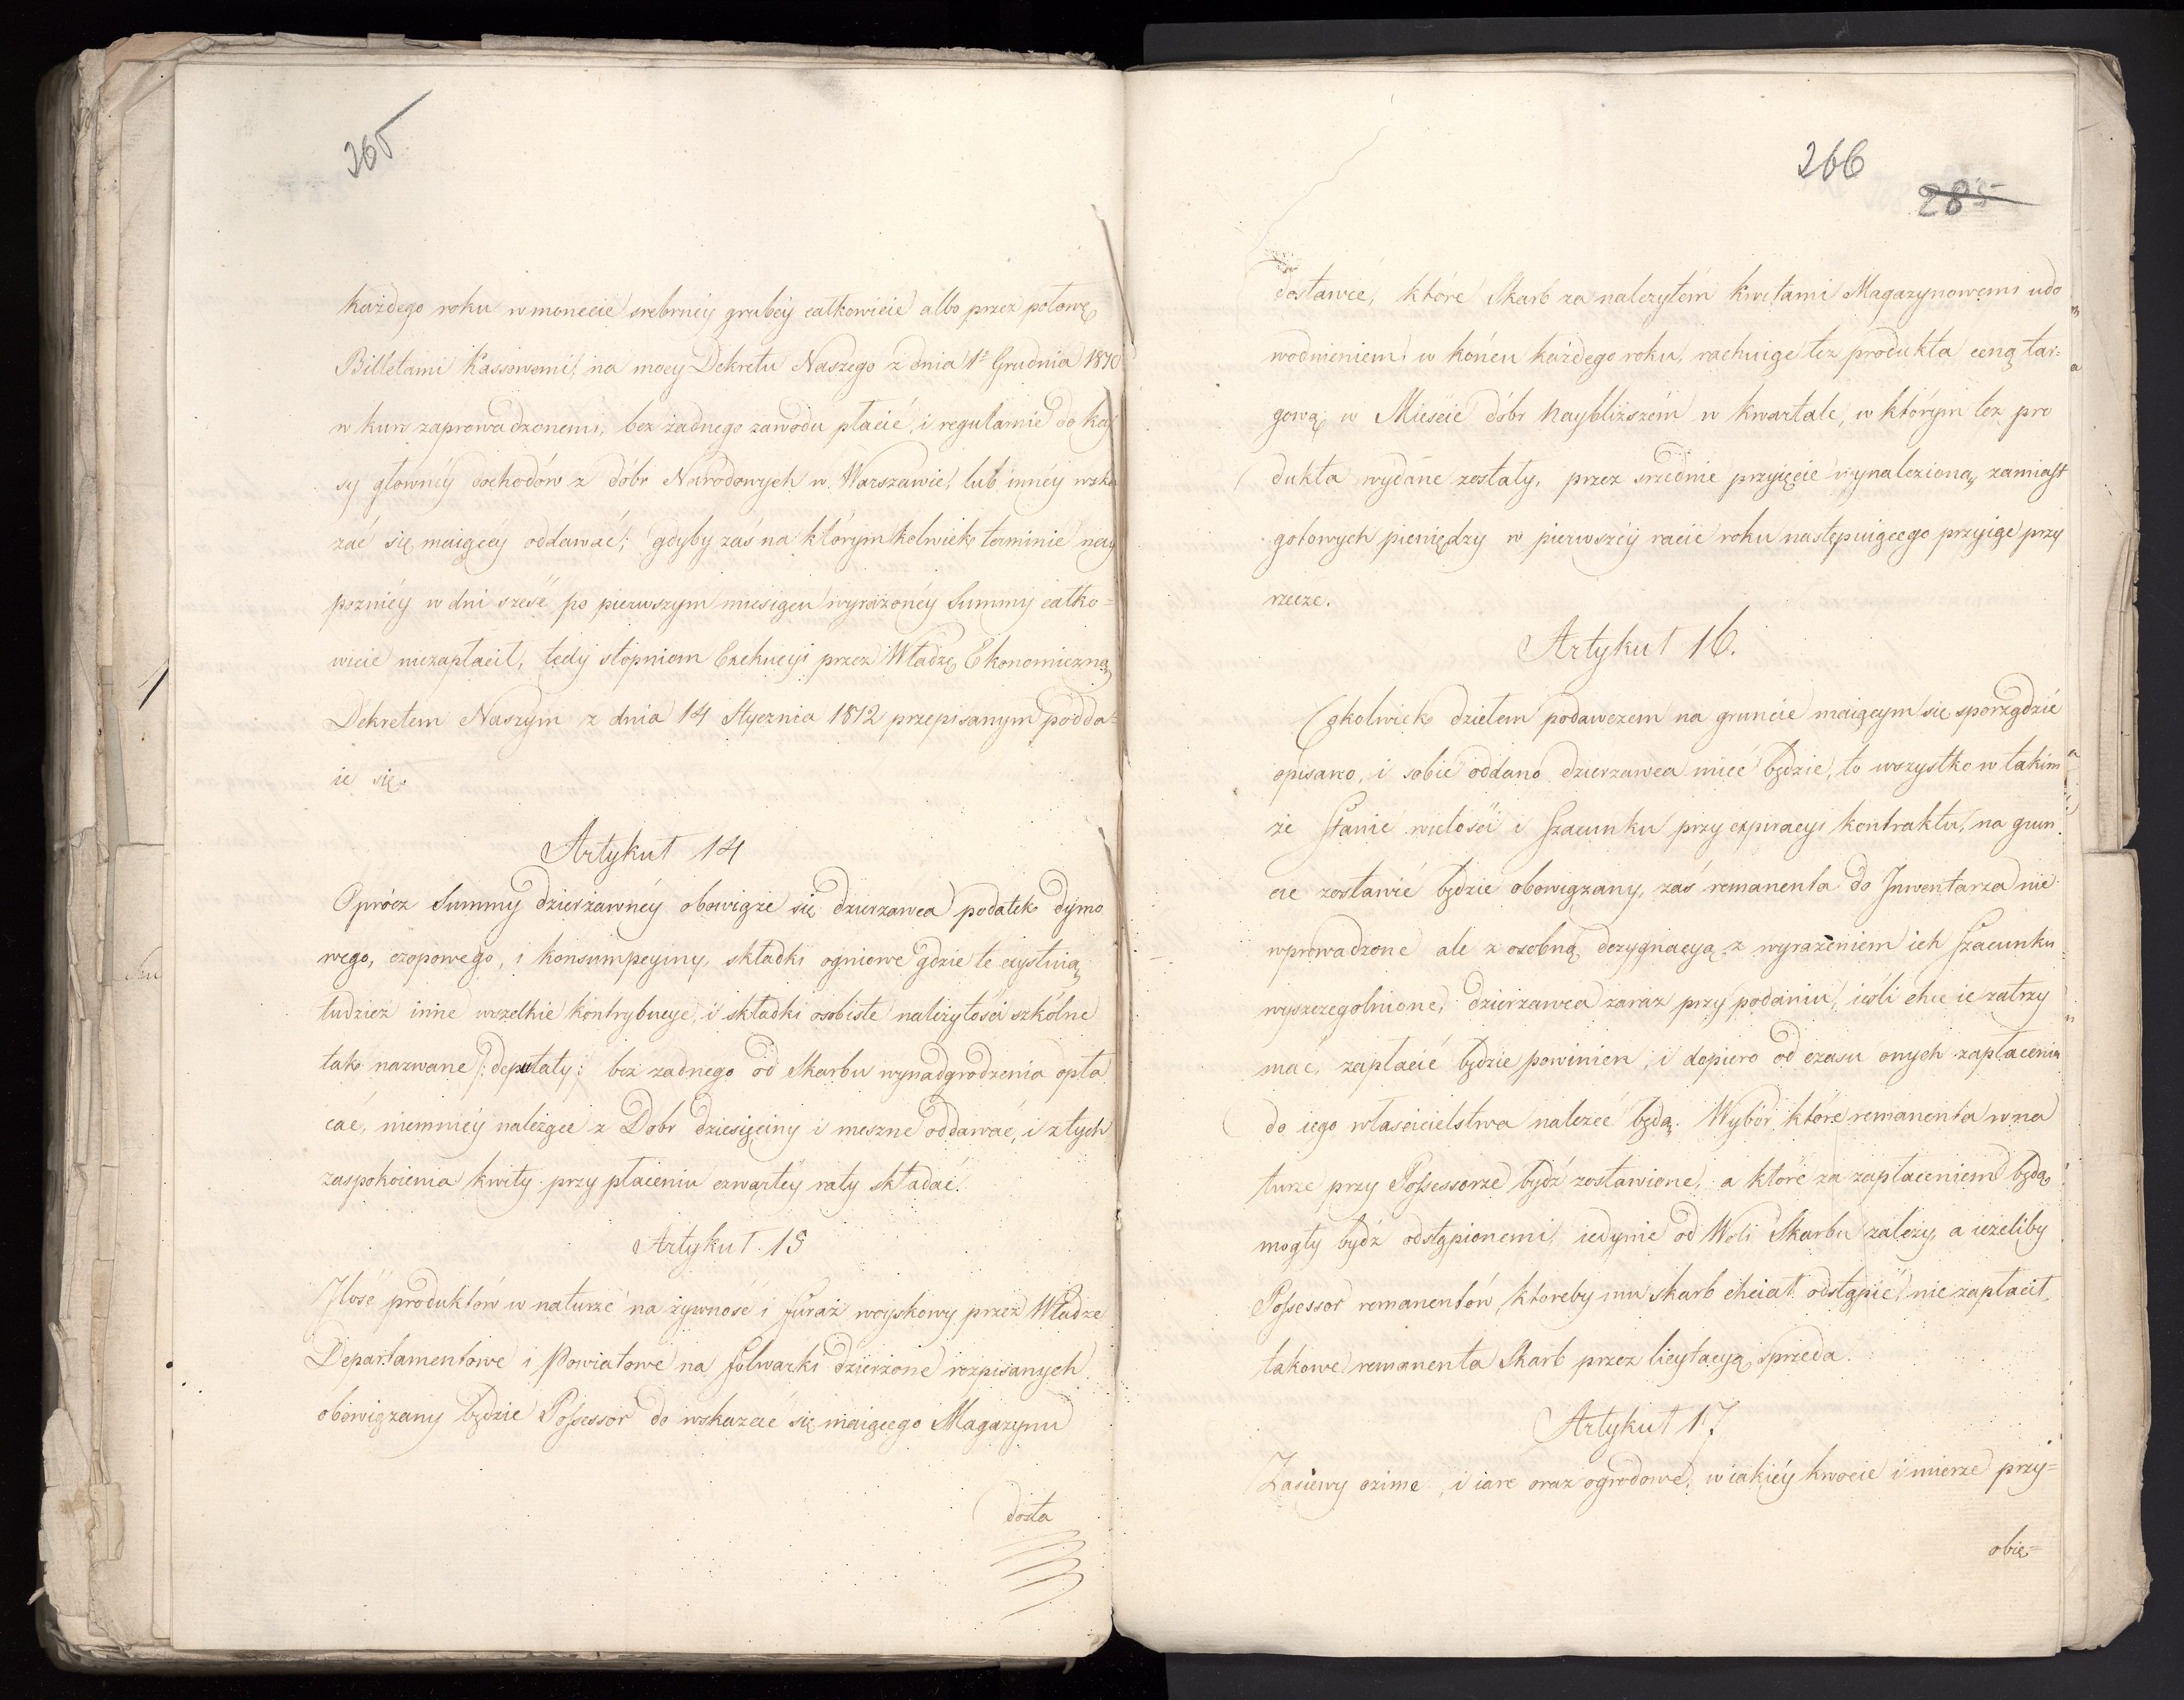 265
każdego roku w monecie srebrnéy grubéy całkowicie albo przez połowę
Billetami Kassowemi, na mocy Dekretu Naszego z dnia 1º Grudnia 1810
w kurs zaprowadzonemi, bez żadnego zawodu płacić, i regularnie do kas
sy głownéy dochodów z dóbr Narodowych w Warszawie, lub innéy wska
zać się maiącéy oddawać; gdyby zaś na którymkolwiek terminie nay
pozniéy w dni sześć po pierwszym miesiącu wyrażonéy Summy całko=
wicie niezapłacił, tedy stopniom Exekucyi przez Władzę Ekonomiczną
Dekretem Naszym z dnia 14 Stycznia 1812 przepisanym podda=
ie się.
Artykuł 14
Oprócz Summy dzierżawnéy obowiąże się dzierzawca podatek dymo
wego, czopowego, i konsumpcyiny, składki ogniowe gdzie te exystuią,
tudzież inne wszelkie kontrybucye, i składki osobiste należytości szkólne
tak nazwane /: deputaty :/ bez żadnego od Skarbu wynadgrodzenia opła
cać, niemniéy należące z Dobr dziesięciny i meszne oddawać, i z tych
zaspokoienia kwity przy płaceniu czwartéy raty składać.
Artykuł. 15
Ilość produktów w naturze na żywność i furaż woyskowy przez Władze
Departamentowe i Powiatowe na folwarki dzierżone rozpisanych
obowiązany będzie Possessor do wskazać się maiącego Magazynu
dosta
266
285
dostawić, które Skarb za należytém kwitami Magazynowemi udo
wodnieniem w końcu każdego roku, rachuiąc tez produkta ceną tar=
gową w Mieście dóbr naybliższém w kwartale, w którym tez pro
dukta wydane zostały, przez srzednie przyięcie wynalezioną, zamiast
gotowych pieniędzy w pierwszéy racie roku następuiącego przyiąc przy
rzecze.
Artykuł 16.
Cokolwiek dziełem podawczem na gruncie maiącym się sporządzić
opisano, i sobie oddano dzierzawca mieć będzie, to wszystko w takim
że stanie wielości i szacunku przy expiracyi kontraktu, na grun
cie zostawić będzie obowiązany, zaś remanenta do Inwentarza nie
wprowadzone ale z osobną dezygnacyą z wyrażeniem ich szacunku
wyszczegolnione, dzierzawca zaraz przy podaniu, ieśli chce ie zatrzy
mać, zapłacić będzie powinien, i dopiero od czasu onych zapłacenia
do iego własicielstwa należeć będą. Wybór, które remanenta w na
turze przy Possessorze bydź zostawione, a które za zapłaceniem będą
mogły bydź odstąpionemi, iedynie od Woli Skarbu zależy, a ieżeliby
Possessor remanentów, któreby mu skarb chciał odstąpić, nie zapłacił,
takowe remanenta Skarb przez licytacyą sprzeda.
Artykuł 17
Zasiewy ozime, i iare oraz ogrodowe, w iakiéy kwocie i mierze przy=
obię=